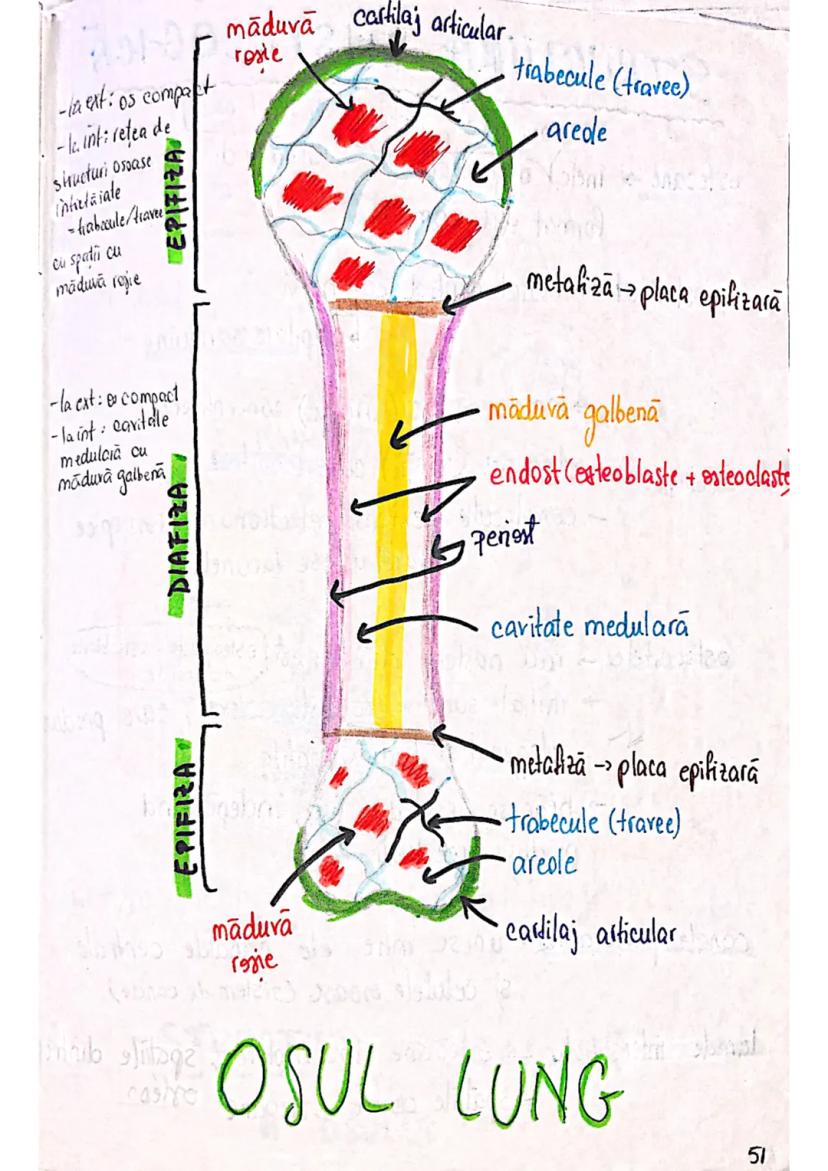 măduvă
roșie
cartilaj articular
trabecule (travee)
areole
-la ext: os compact
-la int: rețea de
structuri osoase
întretăiate
= trabecule/travee
cu spații cu
măduvă roșie
EPIFIZA
metafiză → placa epifizară
-la ext: os compact
-la int: cavitate
medulară cu
măduvă galbenă
DIAFIZA
măduvă galbenă
endost (osteoblaste + osteoclaste)
periost
cavitate medulară
metafiză → placa epifizară
EPIFIZA
trabecule (travee)
areole
măduvă
roșie
cartilaj articular
OSUL LUNG
51